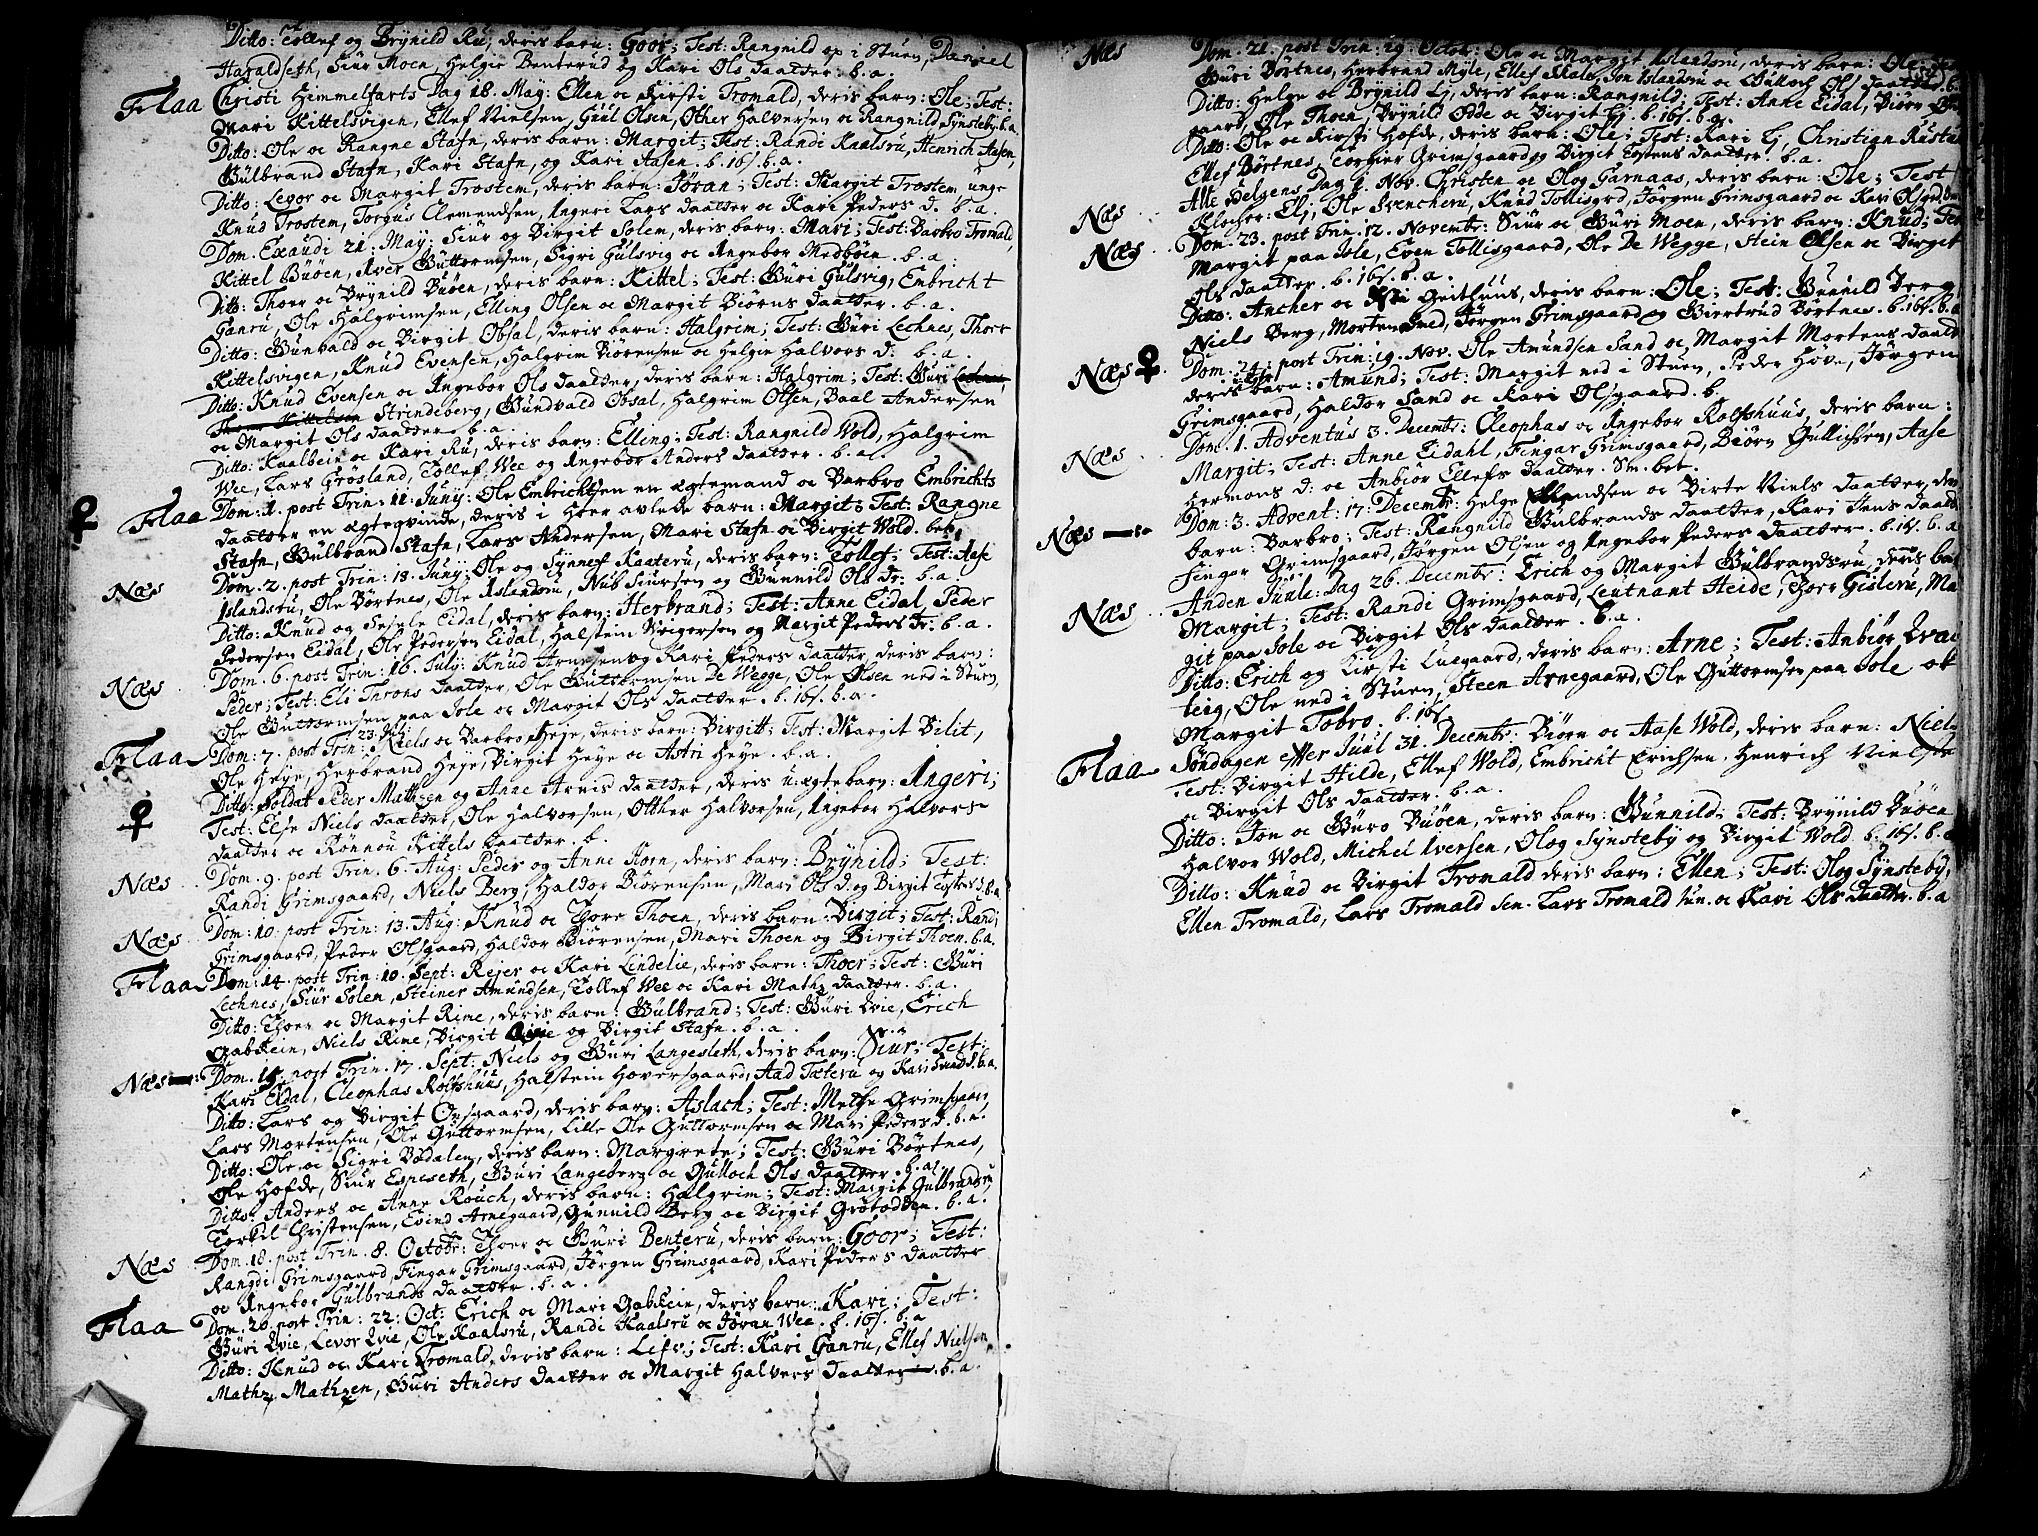 Ditto: Tollef og Brynild Ru, deris barn: Goor; Test: Rangnild op i Stuen, Daniel
Haraldseth, Siur Moen, Helgie Benterud og Kari Ols daatter. b. a.
Flaa Christi Himmelfarts Dag 18. May: Ellen oc Kirsti Tromald, deris barn: Ole; Test:
Mari Kittelsvigen, Ellef Nielsen, Guul Olsen, Other Halversen oc Rangnild Synsteby. b. a.
Ditto: Ole oc Rangne Stafn, deris barn: Margit; Test: Randi Kaalsru, Henrich Aasen,
Gulbrand Stafn, Kari Stafn, og Kari Aasen. b. 16s. b. a.
Ditto: Legor oc Margit Trostem, deris barn: Jøran; Test: Margit Trostem unge
Knud Trostem, Torgus Clemendsen, Angeri Lars daatter oc Kari Peders d. b. a.
Dom. Exaudi 21. May: Siur og Birgit Solem, deris barn: Mari; Test: Barbro Tromald,
Kittel Buøen, Iver Guttormsen, Sigri Gulsvig oc Angebor Medbøen. b. a.
Ditto: Thoer oc Brynild Buøen, deris barn: Kittel; Test: Guri Gulsvig, Embricht
Ganru, Ole Halgrimsen, Elling Olsen oc Margit Biørns daatter. b. a.
Ditto: Gunvald oc Birgit Obsal, deris barn: Halgrim; Test: Guri Lechnes, Thoer
Kittelsvigen, Knud Evensen, Halgrim Biørensen oc Helgie Halvors d: b. a.
Ditto: Knud Evensen oc Angebor Ols daatter, deris barn: Halgrim; Test: Guri Lechnes,
Thoer Kittelsen Strindeberg, Gundvald Obsal, Halgrim Olsen, Baal Andersen
oc Margit Ols daatter b. a.
Ditto: Kaalbein oc Kari Ru, deris barn: Elling; Test: Rangnild Wold, Halgrim
Wee, Lars Grøsland, Tollef Wee og Angebor Anders daatter. b. a.
Flaa Dom: 1. post Trin: 11. Juny: Ole Embrichtsen en Ægtemand oc Barbro Embrichts
daatter en Ægteqvinde, deris i Hoer avlede barn: Margit; Test: Rangne
Stafn, Gulbrand Stafn, Lars Andersen, Mari Stafn oc Birgit Wold. bet.
Næs Dom. 2. post Trin: 18. Juny: Ole og Synnef Kaateru, deris barn: Tollef; Test: Aase
Islandsru, Ole Børtnes, Ole Aslandsru, Nub Siursen og Gunnild Ols dr: b. a.
Ditto: Knud og Sesele Eidal, deris barn: Herbrand; Test: Anne Eidal, Peder
Pedersen Eidal, Ole Pedersen Eidal, Halstein Reigersen og Margit Peders dr: b. a.
Næs Dom. 6. post Trin: 16. July: Knud Arnesen og Kari Peders daatter, deris barn:
Peder; Test: Eli Throns daatter, Ole Guttormsen De Wegge, Ole Olsen ned i Stuen,
Ole Guttormsen paa Jole oc Margit Ols daatter. b. 16s. b. a.
23. Juli
Flaa Dom: 7. post Trin: Niels oc Barbro Heje, deris barn: Birgitt; Test: Margit Vilit,
Ole Heje, Herbrand Heje, Birgit Heje oc Astri Heye. b. a.
Ditto: Soldat Peder Mathsen og Anne Arnis daatter, deris uægte barn: Angeri;
Test: Else Niels daatter, Ole Halvorsen, Olther Halvorsen, Angebor Halvors
daatter oc Rønnou Kittels daatter. b.
Næs Dom. 9. post Trin. 6. Aug: Peder og Anne Korn, deris barn: Brynild; Test:
Randi Grimsgaard, Niels Berg, Haldor Biørensen, Mari Ols d. og Birgit Tosten d. b. a.
Næs Dom: 10. post Trin: 13. Aug: Knud oc Thore Thoen, deris barn: Birgit; Test: Randi
Grimsgaard, Peder Olsgaard, Haldor Biørensen, Mari Thoen og Birgit Thoen. b. a.
Flaa Dom: 14. post Trin: 10. Sept: Rejer oc Kari Lindelie, deris barn: Thoer; Test: Guri
Lechnes, Siur Solem, Steiner Amundsen, Tollef Wee oc Kari Maths daatter. b. a.
Ditto: Thoer oc Margit Rime, deris barn: Gulbrand; Test: Guri Qvie, Erich
Gabstein, Niels Rime, Birgit Qvie og Birgit Stafn. b. a.
Næs Dom. 15. post Trin. 17. Sept: Niels og Guri Langesleth, deris barn: Siur; Test:
Kari Eidal, Cleophas Rolfshuus, Halstein Hoversgaard, Aad Tæteru og Kari Svend d. b. a.
Ditto: Lars og Birgit Onsgaard, deris barn: Aslach; Test: Mette Grimsgaard,
Lars Mortensen, Ole Guttormsen, Lille Ole Guttormsen oc Mari Peders d. b. a.
Ditto: Ole oc Sigri Bødalen, deris barn: Margrete; Test: Guri Børtnes,
Ole Hofde, Siur Espeseth, Guri Langeberg oc Gulloch Ols daatter. b. a.
Ditto: Anders oc Anne Rouch, deris barn: Halgrim; Test: Margit Gulbrandsru,
Torkil Christensen, Evind Arnegaard, Gunnild Berg oc Birgit Grøtodden. b. a.
Næs Dom. 18. post Trin. 8. Octobr: Thoer oc Guri Benteru, deris barn: Goor; Test:
Rangdi Grimsgaard, Fingar Grimsgaard, Jørgen Grimsgaard, Kari Peders daatter
oc Angebor Gulbrands daatter. b. a.
Flaa Dom. 20. post Trin: 22: Oct: Erich oc Mari Gabstein, deris barn: Kari; Test:
Guri Qvie, Levor Qvie, Ole Kaalsru, Randi Kaalsru oc Jøran Wee. b. 16s. b. a
Ditto: Knud oc Kari Tromald, deris barn: Lifv; Test: Kari Ganru, Ellef Nielsen,
Maths Mathsen, Guri Anders daatter oc Margit Halvers daatter. b. a.
Næs Dom. 21. post Trin: 29. Octobr: Ole oc Margit Aslandsru, deris barn: Ole;
Guri Børtnes, Herbrand Myle, Ellef Skale, Jon Islandsru oc Gulloch Ols daatter b.
Ditto: Helge oc Brynild Ej, deris barn: Rangnild; Test: Anne Eidal, Biørn
gaard, Ole Thoen, Brynild Odde oc Birgit Ej. b. 16s. b. a.
Ditto: Ole oc Kirsti Hofde, deris barn: Ole; Test: Kari Ej, Christian Rustad
Ellef Børtnes, Torbiør Grimsgaard og Birgit Tostens daatter. b. a.
Næs Alle Helgens Dag 1. Nov. Christen oc Olog Garnaas, deris barn: Ole; Test
Klocker: Elj, Ole Svencheru, Knud Tollisgrd, Jørgen Grimsgaard oc Kari Olsgrd.
Næs Dom. 23. post Trin. 12. Novembr: Siur oc Guri Moen, deris barn: Knud; Test
Margit paa Jole, Even Tollisgaard, Ole De Wegge, Stein Olsen oc Birgit
Ols daatter. b. 16s. b. a.
Ditto: Ancher oc Geithuus, deris barn: Ole; Test: Gunnild Berg
Niels Berg, Morten Smed, Jørgen Grimsgaard og Giertrud Børtnes. b. 16s. b. a
Næs Dom. 24. post Trin: 19. Nov. Ole Amundsen Sand oc Margit Mortens daatt
deris barn: Amund; Test: Margit ned i Stuen, Peder Hove, Jørgen
Grimsgaard, Haldor Sand oc Kari Olsgaard. b.
Næs Dom. 1. Adventus 3. Decembr: Cleophas oc Angebor Rolfshuus, deris barn:
Margit; Test: Anne Eidahl, Fingar Grimsgaard, Biørn Gullichsen, Aase
Hermons d: oc Anbiør Ellefs daatter. Sm. bet.
Næs Dom: 3. Advent: 17: Decembr: Helge Ellendsen oc Birte Niels daatter,
barn: Barbro; Test: Rangnild Gulbrands daatter, Kari Jens daatt
Fingar Grimsgaard, Jørgen Olsen og Angebor Peders daatter. b. 16s. b. a.
Næs Anden Juule: Dag 26. Decembr: Erich og Margit Gulbrandsru, deris ba
Margit; Test: Randi Grimsgaard, Leutnant Heide, Thore Gisleru, Ma
git paa Jole oc Birgit Ols daatter. b. a.
Ditto: Erich og Kirsti Luegaard, deris barn: Arne; Test: Anbiør Qvar
berg, Ole ned i Stuen, Steen Arnegaard, Ole Guttormsen paa Jole ot
Margit Tobro. b. 16s
Flaa Søndagen effter Juul 31. Decembr: Biørn oc Aase Wold, deris barn: Niels
Test: Birgit Hilde, Ellef Wold, Embricht Erichsen, Henrich Nielsen
oc Birgit Ols daatter. b. a.
Ditto: Jon oc Guro Buøen, deris barn: Gunnild; Test: Brynild Buøen
Halvor Wold, Michel Iversen, Olog Synsteby og Birgit Wold b. 16s. b. a
Ditto: Knud oc Birgit Tromald deris barn: Ellen; Test: Olog Synsteby,
Ellen Tromald, Lars Tromald sen. Lars Tromald jun. oc Kari Ols daatter. b. a